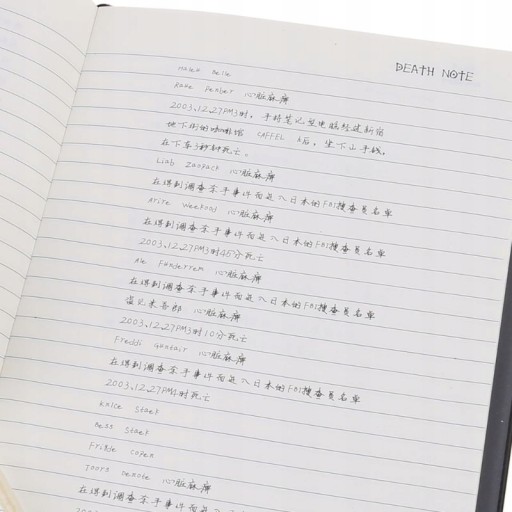 DEATH NOTE
Haley Belle
Raye Penber 心脏麻痹
2003.12.27PM3时，手持笔记型电脑经过新宿
地下街的咖啡馆 CAFFEL 后，坐下山手线，
在下车3秒钟死亡。
Lian Zaopack 心脏麻痹
在得到调查杀手事件而进入日本的FBI搜查员名单
Arire Weekood 心脏麻痹
在得到调查杀手事件而进入日本的FBI搜查员名单
2003.12.27PM3时45分死亡
Ale Funderrem 心脏麻痹
在得到调查杀手事件而进入日本的FBI搜查员名单
心脏麻痹
2003.12.27PM3时10分死亡
Freddi Guntair 心脏麻痹
在得到调查杀手事件而进入日本的FBI搜查员名单
2003.12.27PM4时死亡
Knice Staek
Bess Staek
Frigde Copen
Toors Denote 心脏麻痹
在得到调查杀手事件而进入日本的FBI搜查员名单